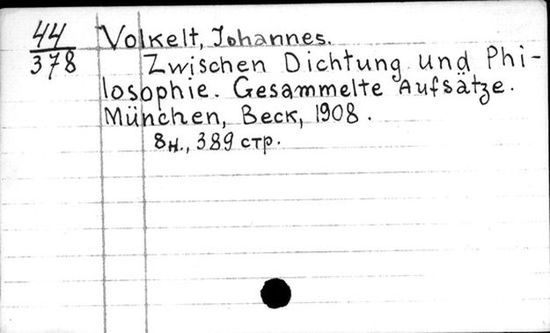 44
378
Volkelt, Johannes.
Zwischen Dichtung und Phi-
losophie. Gesammelte Aufsätze.
München, Beck, 1908.
8н., 389 стр.